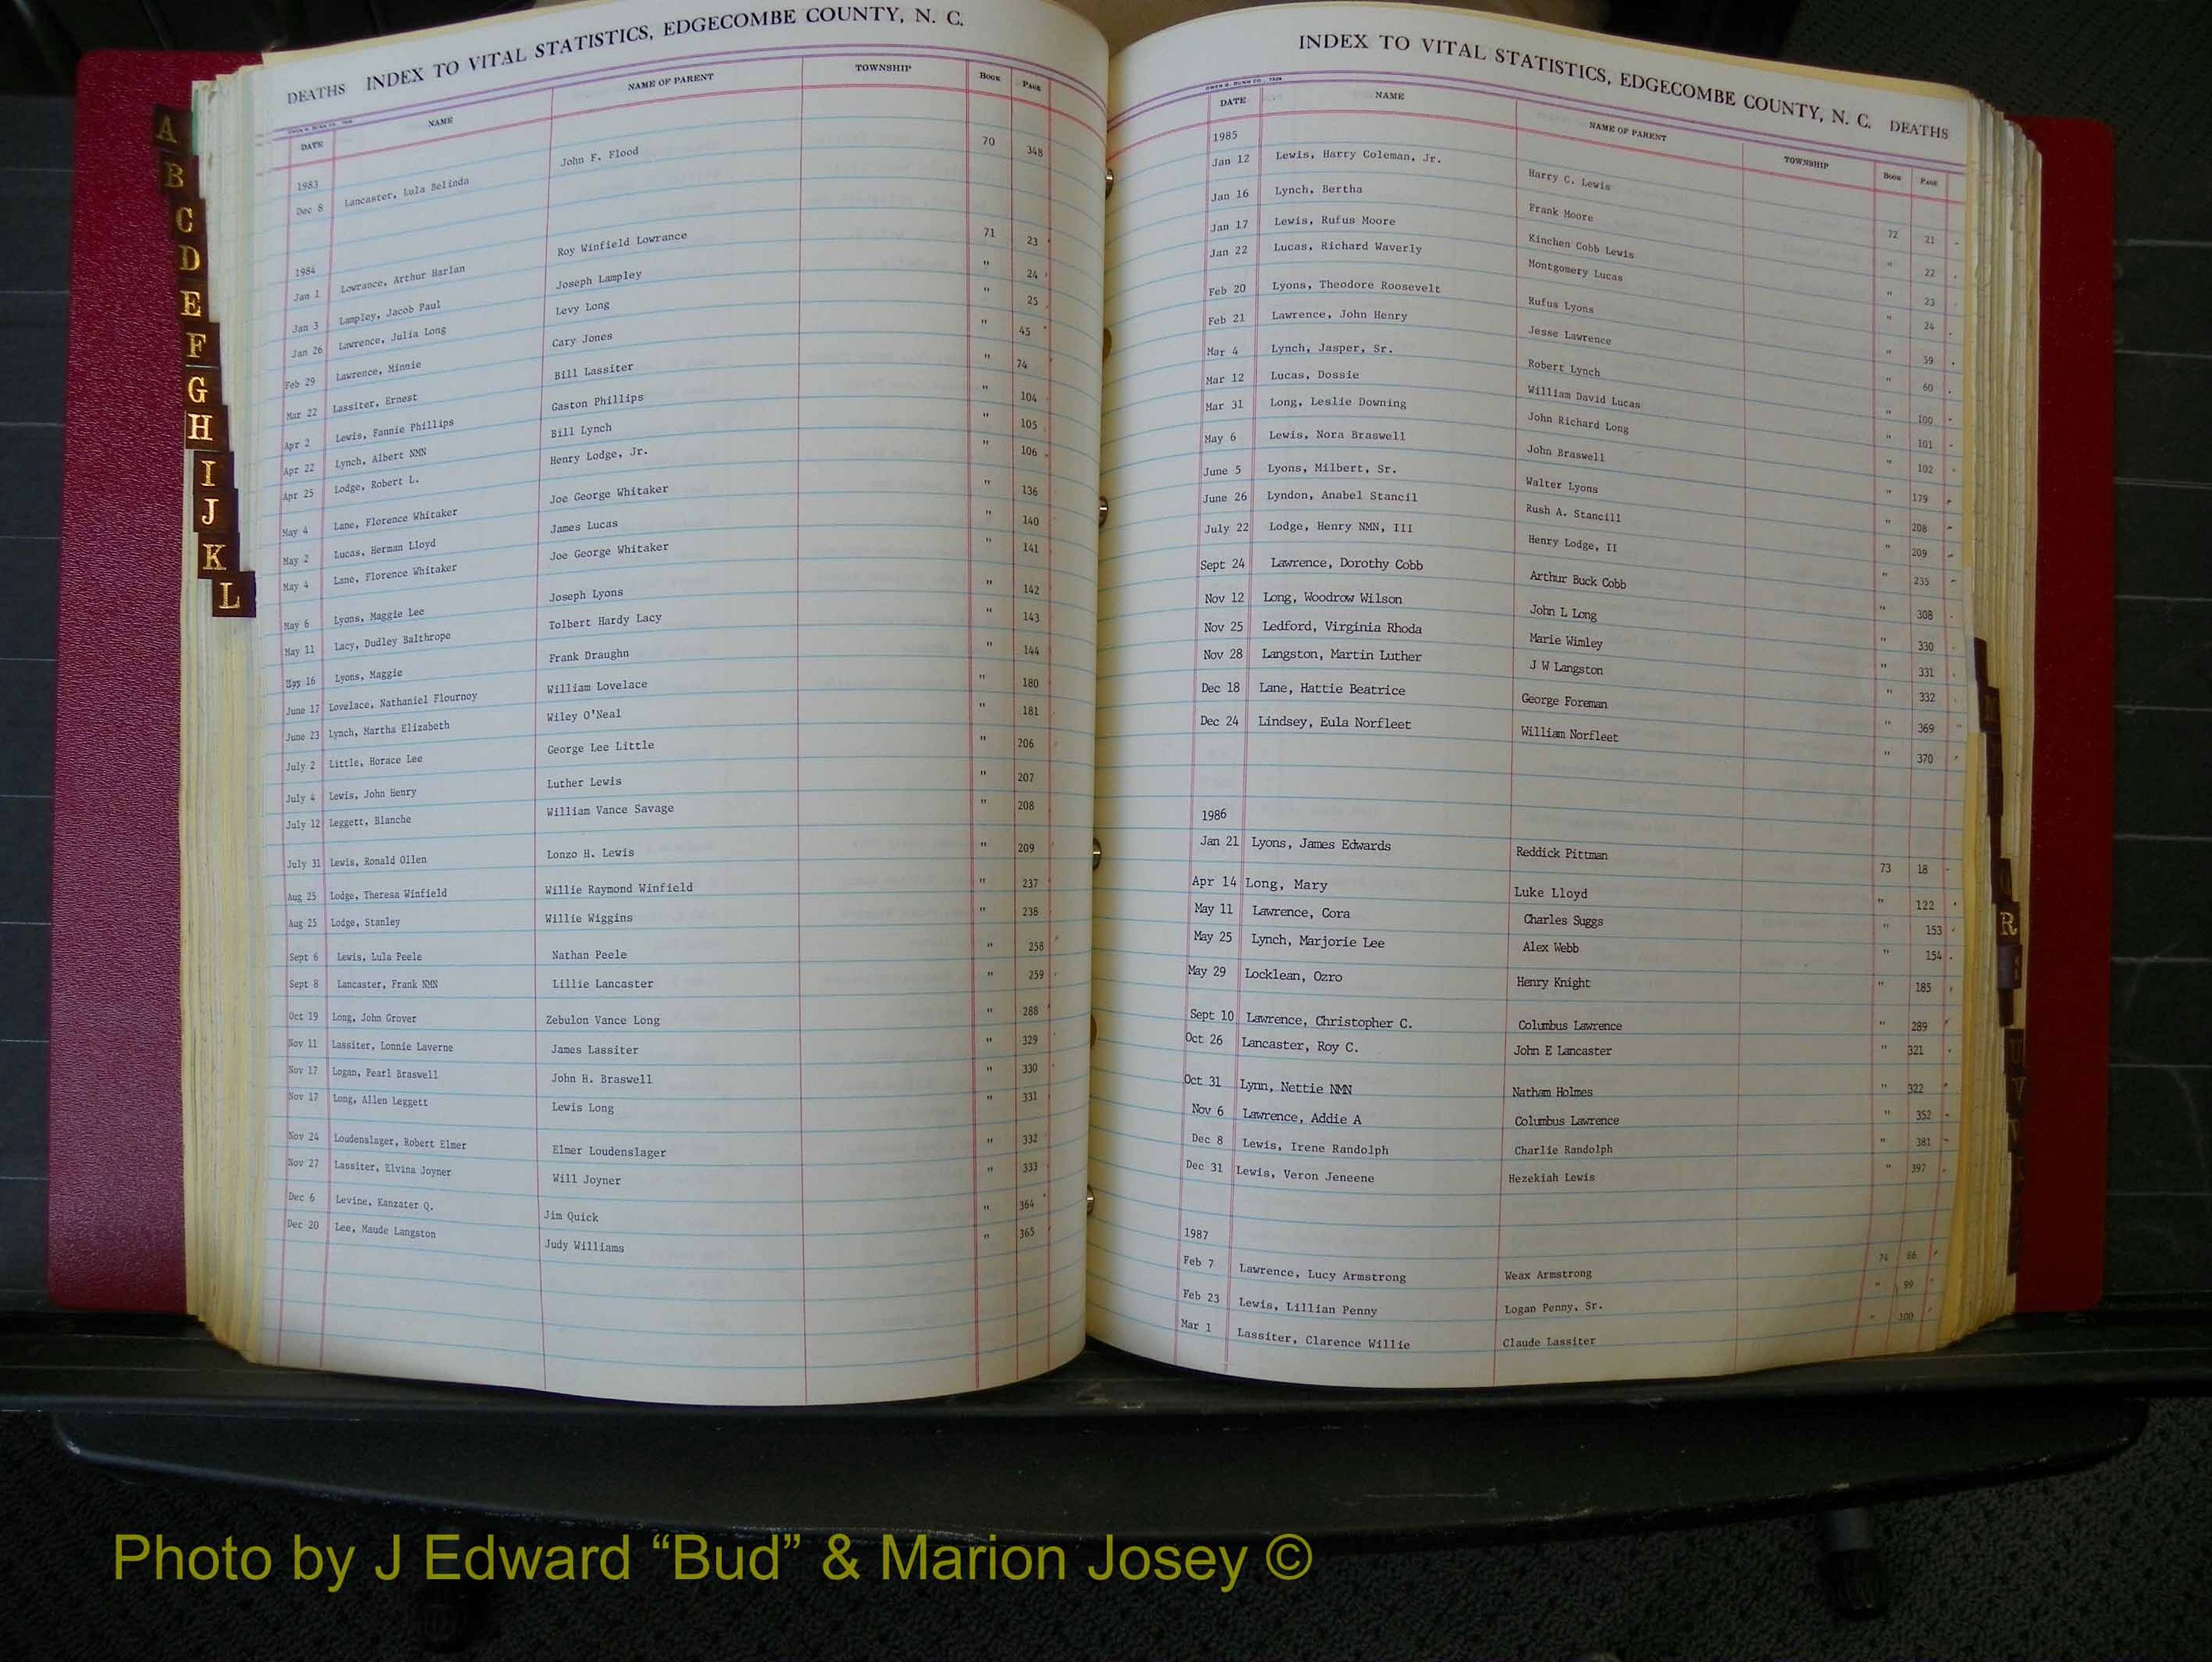 DEATHS INDEX TO VITAL STATISTICS, EDGECOMBE COUNTY, N. C.
DATE NAME NAME OF PARENT TOWNSHIP BOOK PAGE
1983
Dec 8 Lancaster, Lula Belinda John F. Flood 70 348
1984
Jan 1 Lowrance, Arthur Harlan Roy Winfield Lowrance 71 23
Jan 3 Lampley, Jacob Paul Joseph Lampley " 24
Jan 26 Lawrence, Julia Long Levy Long " 25
Feb 29 Lawrence, Minnie Cary Jones " 45
Mar 22 Lassiter, Ernest Bill Lassiter " 74
Apr 2 Lewis, Fannie Phillips Gaston Phillips " 104
Apr 22 Lynch, Albert NMN Bill Lynch " 105
Apr 25 Lodge, Robert L. Henry Lodge, Jr. " 106
May 4 Lane, Florence Whitaker Joe George Whitaker " 136
May 2 Lucas, Herman Lloyd James Lucas " 140
May 4 Lane, Florence Whitaker Joe George Whitaker " 141
May 6 Lyons, Maggie Lee Joseph Lyons " 142
May 11 Lacy, Dudley Balthrope Tolbert Hardy Lacy " 143
May 16 Lyons, Maggie Frank Draughn " 144
June 17 Lovelace, Nathaniel Flournoy William Lovelace " 180
June 23 Lynch, Martha Elizabeth Wiley O'Neal " 181
July 2 Little, Horace Lee George Lee Little " 206
July 4 Lewis, John Henry Luther Lewis " 207
July 12 Leggett, Blanche William Vance Savage " 208
July 31 Lewis, Ronald Ollen Lonzo H. Lewis " 209
Aug 25 Lodge, Theresa Winfield Willie Raymond Winfield " 237
Aug 25 Lodge, Stanley Willie Wiggins " 238
Sept 6 Lewis, Lula Peele Nathan Peele " 258
Sept 8 Lancaster, Frank NMN Lillie Lancaster " 259
Oct 19 Long, John Grover Zebulon Vance Long " 288
Nov 11 Lassiter, Lonnie Laverne James Lassiter " 329
Nov 17 Logan, Pearl Braswell John H. Braswell " 330
Nov 17 Long, Allen Leggett Lewis Long " 331
Nov 24 Loudenslager, Robert Elmer Elmer Loudenslager " 332
Nov 27 Lassiter, Elvina Joyner Will Joyner " 333
Dec 6 Levine, Kanzater Q. Jim Quick " 364
Dec 20 Lee, Maude Langston Judy Williams " 365
INDEX TO VITAL STATISTICS, EDGECOMBE COUNTY, N. C. DEATHS
DATE NAME NAME OF PARENT TOWNSHIP BOOK PAGE
1985
Jan 12 Lewis, Harry Coleman, Jr. Harry C. Lewis 72 21
Jan 16 Lynch, Bertha Frank Moore " 22
Jan 17 Lewis, Rufus Moore Kinchen Cobb Lewis " 23
Jan 22 Lucas, Richard Waverly Montgomery Lucas " 24
Feb 20 Lyons, Theodore Roosevelt Rufus Lyons " 59
Feb 21 Lawrence, John Henry Jesse Lawrence " 60
Mar 4 Lynch, Jasper, Sr. Robert Lynch " 100
Mar 12 Lucas, Dossie William David Lucas " 101
Mar 31 Long, Leslie Downing John Richard Long " 102
May 6 Lewis, Nora Braswell John Braswell " 179
June 5 Lyons, Milbert, Sr. Walter Lyons " 208
June 26 Lyndon, Anabel Stancil Rush A. Stancill " 209
July 22 Lodge, Henry NMN, III Henry Lodge, II " 235
Sept 24 Lawrence, Dorothy Cobb Arthur Buck Cobb " 308
Nov 12 Long, Woodrow Wilson John L Long " 330
Nov 25 Ledford, Virginia Rhoda Marie Wimley " 331
Nov 28 Langston, Martin Luther J W Langston " 332
Dec 18 Lane, Hattie Beatrice George Foreman " 369
Dec 24 Lindsey, Eula Norfleet William Norfleet " 370
1986
Jan 21 Lyons, James Edwards Reddick Pittman 73 18
Apr 14 Long, Mary Luke Lloyd " 122
May 11 Lawrence, Cora Charles Suggs " 153
May 25 Lynch, Marjorie Lee Alex Webb " 154
May 29 Locklean, Ozro Henry Knight " 185
Sept 10 Lawrence, Christopher C. Columbus Lawrence " 289
Oct 26 Lancaster, Roy C. John E Lancaster " 321
Oct 31 Lynn, Nettie NMN Natham Holmes " 322
Nov 6 Lawrence, Addie A Columbus Lawrence " 352
Dec 8 Lewis, Irene Randolph Charlie Randolph " 381
Dec 31 Lewis, Veron Jeneene Hezekiah Lewis " 397
1987
Feb 7 Lawrence, Lucy Armstrong Weax Armstrong 74 66
Feb 23 Lewis, Lillian Penny Logan Penny, Sr. " 99
Mar 1 Lassiter, Clarence Willie Claude Lassiter " 100
A
B
C
D
E
F
G
H
I
J
K
L
R
Photo by J Edward “Bud” & Marion Josey ©